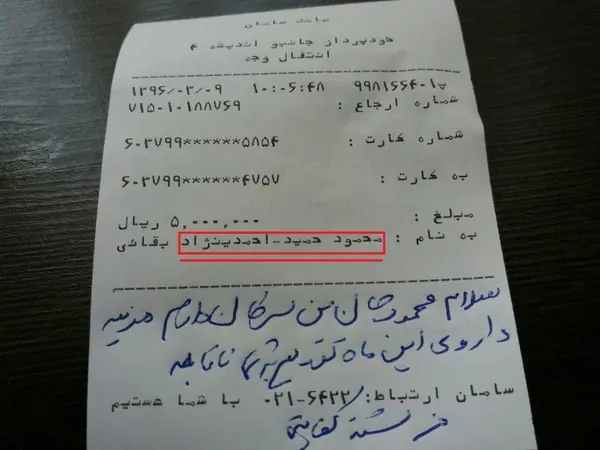 بانک سامان
خودپرداز جانبو اندیشه ۴
انتقال وجه
۱۳۹۶/۰۳/۰۹ ۱۰:۰۶:۴۸ پ۹۹۸۱۶۶۴۰۱
شماره ارجاع : ۷۱۵۰۱۰۱۸۸۷۶۹
شماره کارت : ۶۰۳۷۹۹******۵۸۵۴
به کارت : ۶۰۳۷۹۹******۴۷۵۷
مبلغ : ۵,۰۰۰,۰۰۰ ریال
به نام : محمود حمید-احمدینژاد بقائی
سلام محمود جان من سرکار ندارم هزینه
داروی این ماه تقدیم
سامان ارتباط: ۶۴۲۲-۰۲۱ با شما هستیم
فرشته